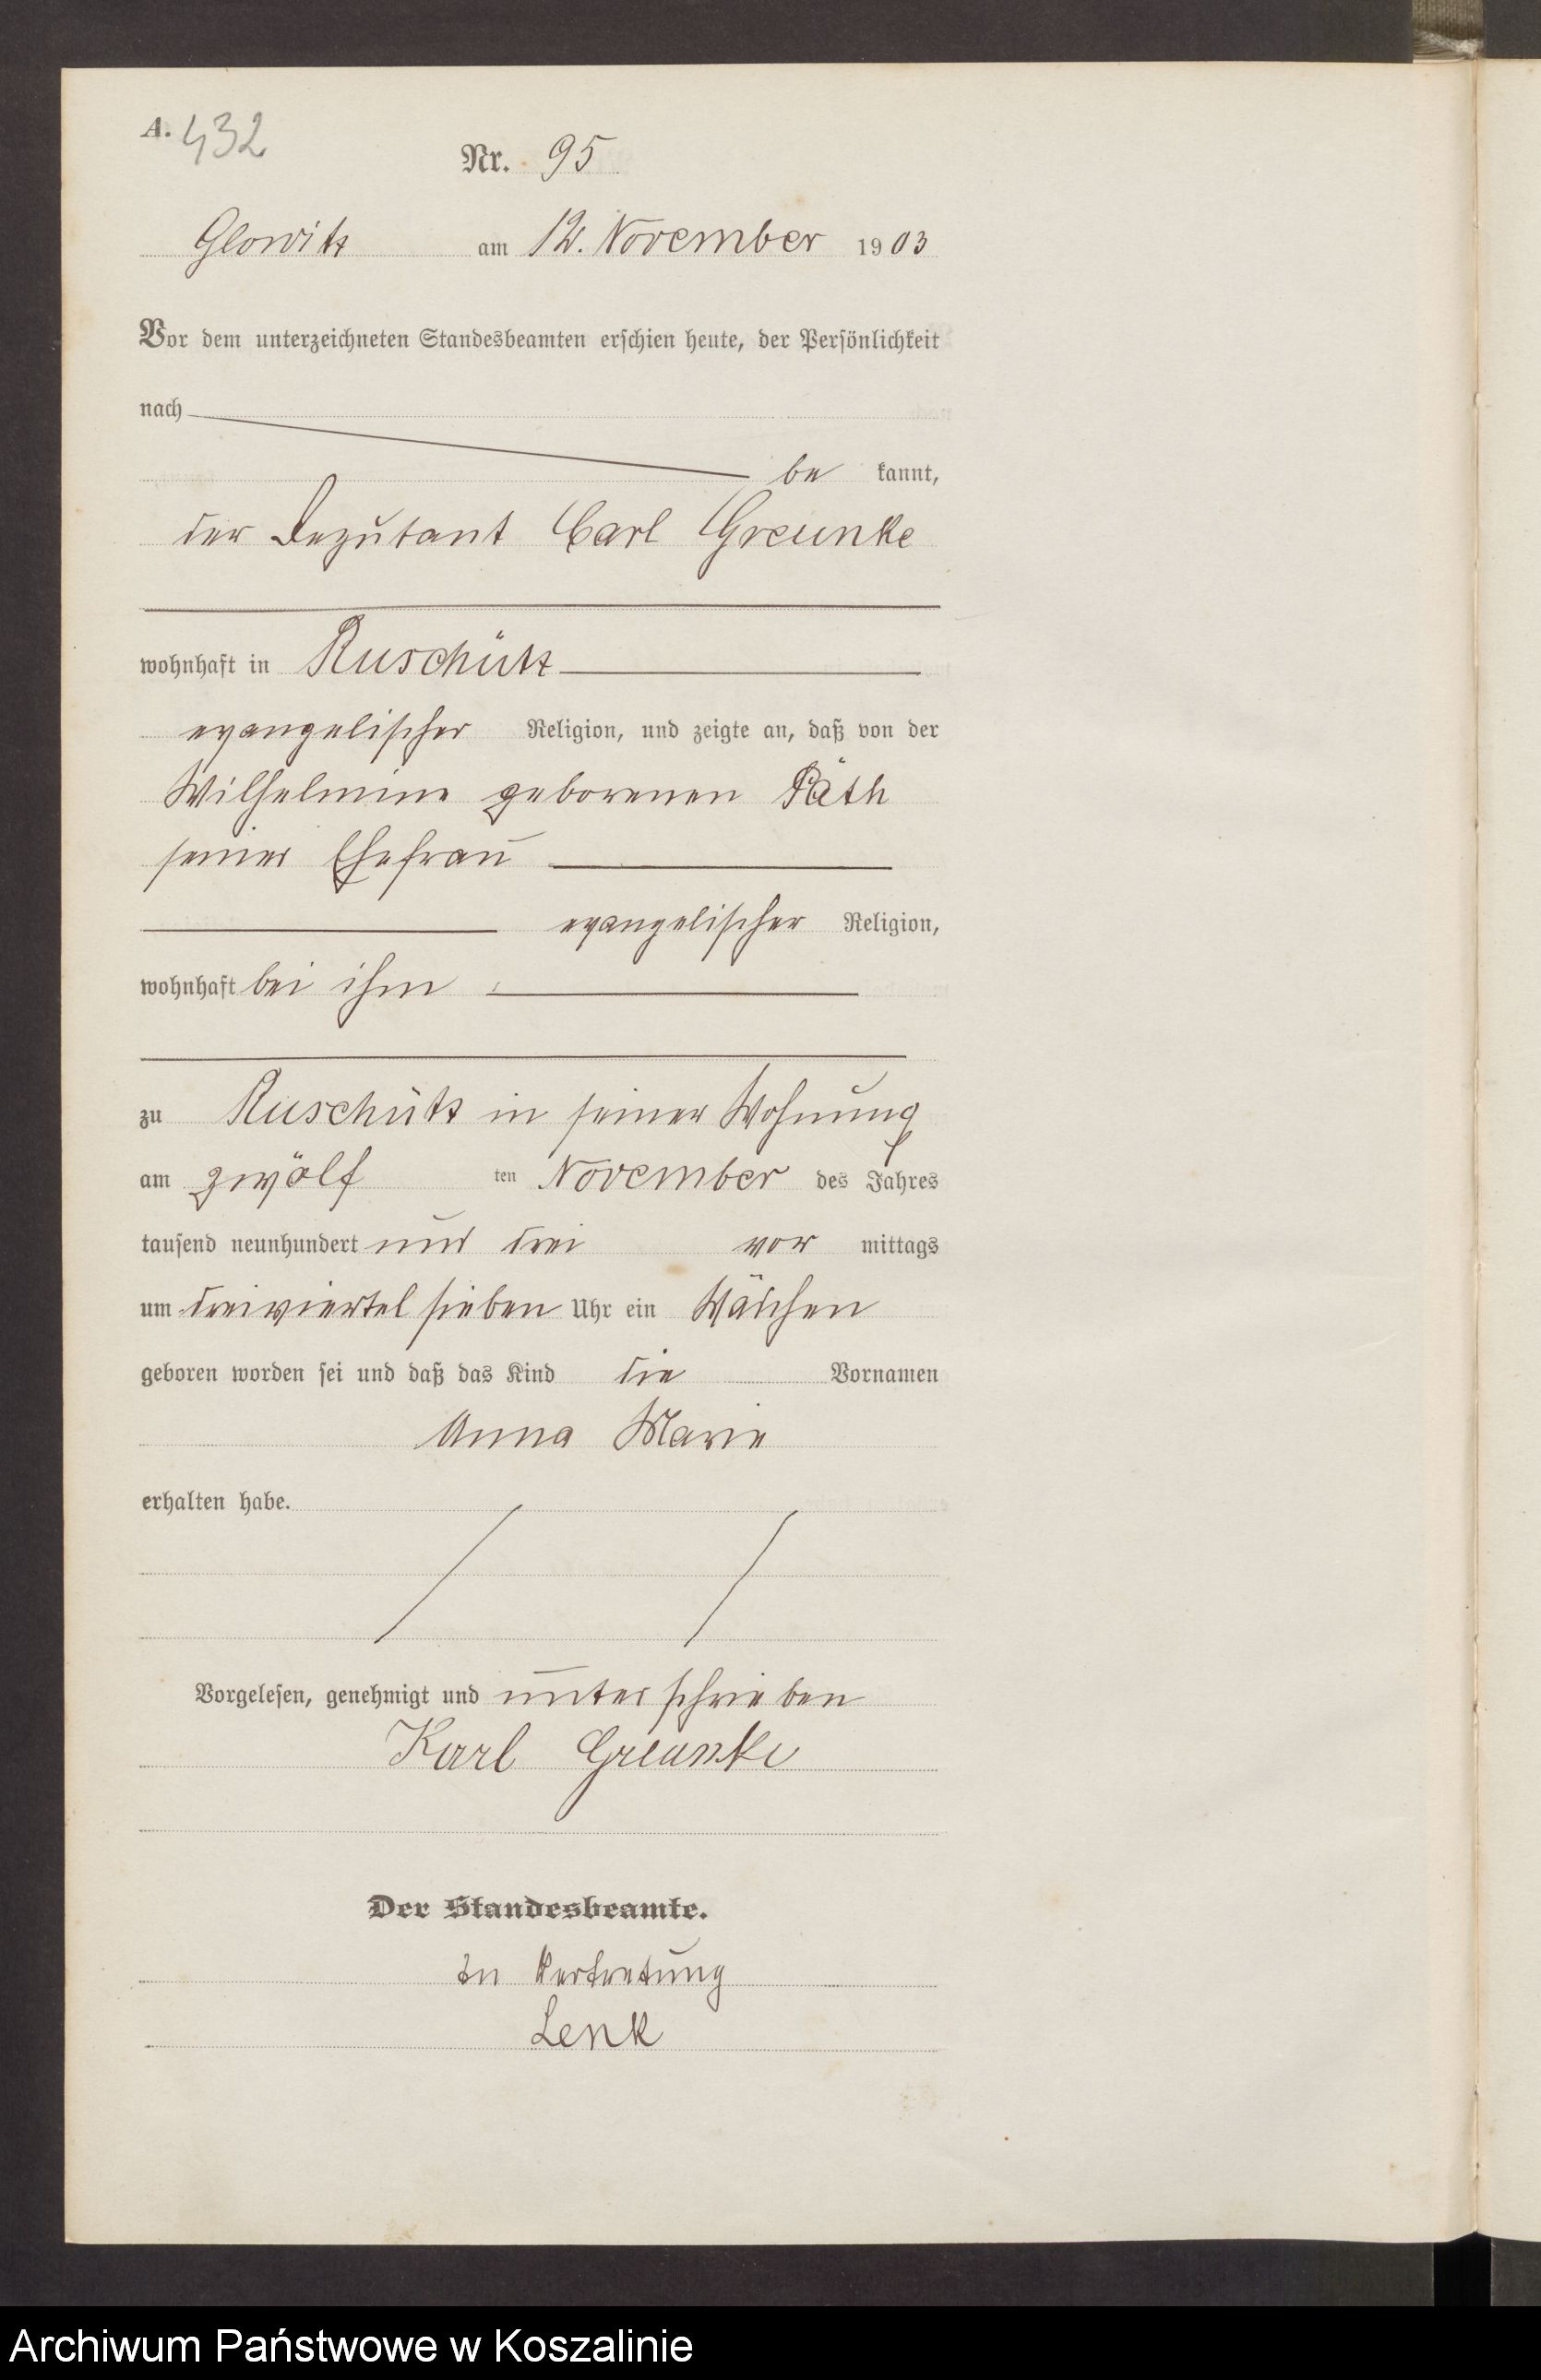 A. 432
Nr. 95
Glowitz am 12. November 1903
Vor dem unterzeichneten Standesbeamten erschien heute, der Persönlichkeit
nach
be kannt,
der Deputant Carl Greunke
wohnhaft in Ruschütz
evangelischer Religion, und zeigte an, daß von der
Wilhelmine geborenen Päth
seiner Ehefrau
evangelischer Religion,
wohnhaft bei ihm
zu Ruschütz in seiner Wohnung
am zwölf ten November des Jahres
tausend neunhundert und drei vor mittags
um dreiviertel sieben Uhr ein Mädchen
geboren worden sei und daß das Kind die Vornamen
Anna Marie
erhalten habe.
Vorgelesen, genehmigt und unterschrieben
Karl Greunke
Der Standesbeamte.
In Vertretung
Lenk
Archiwum Państwowe w Koszalinie